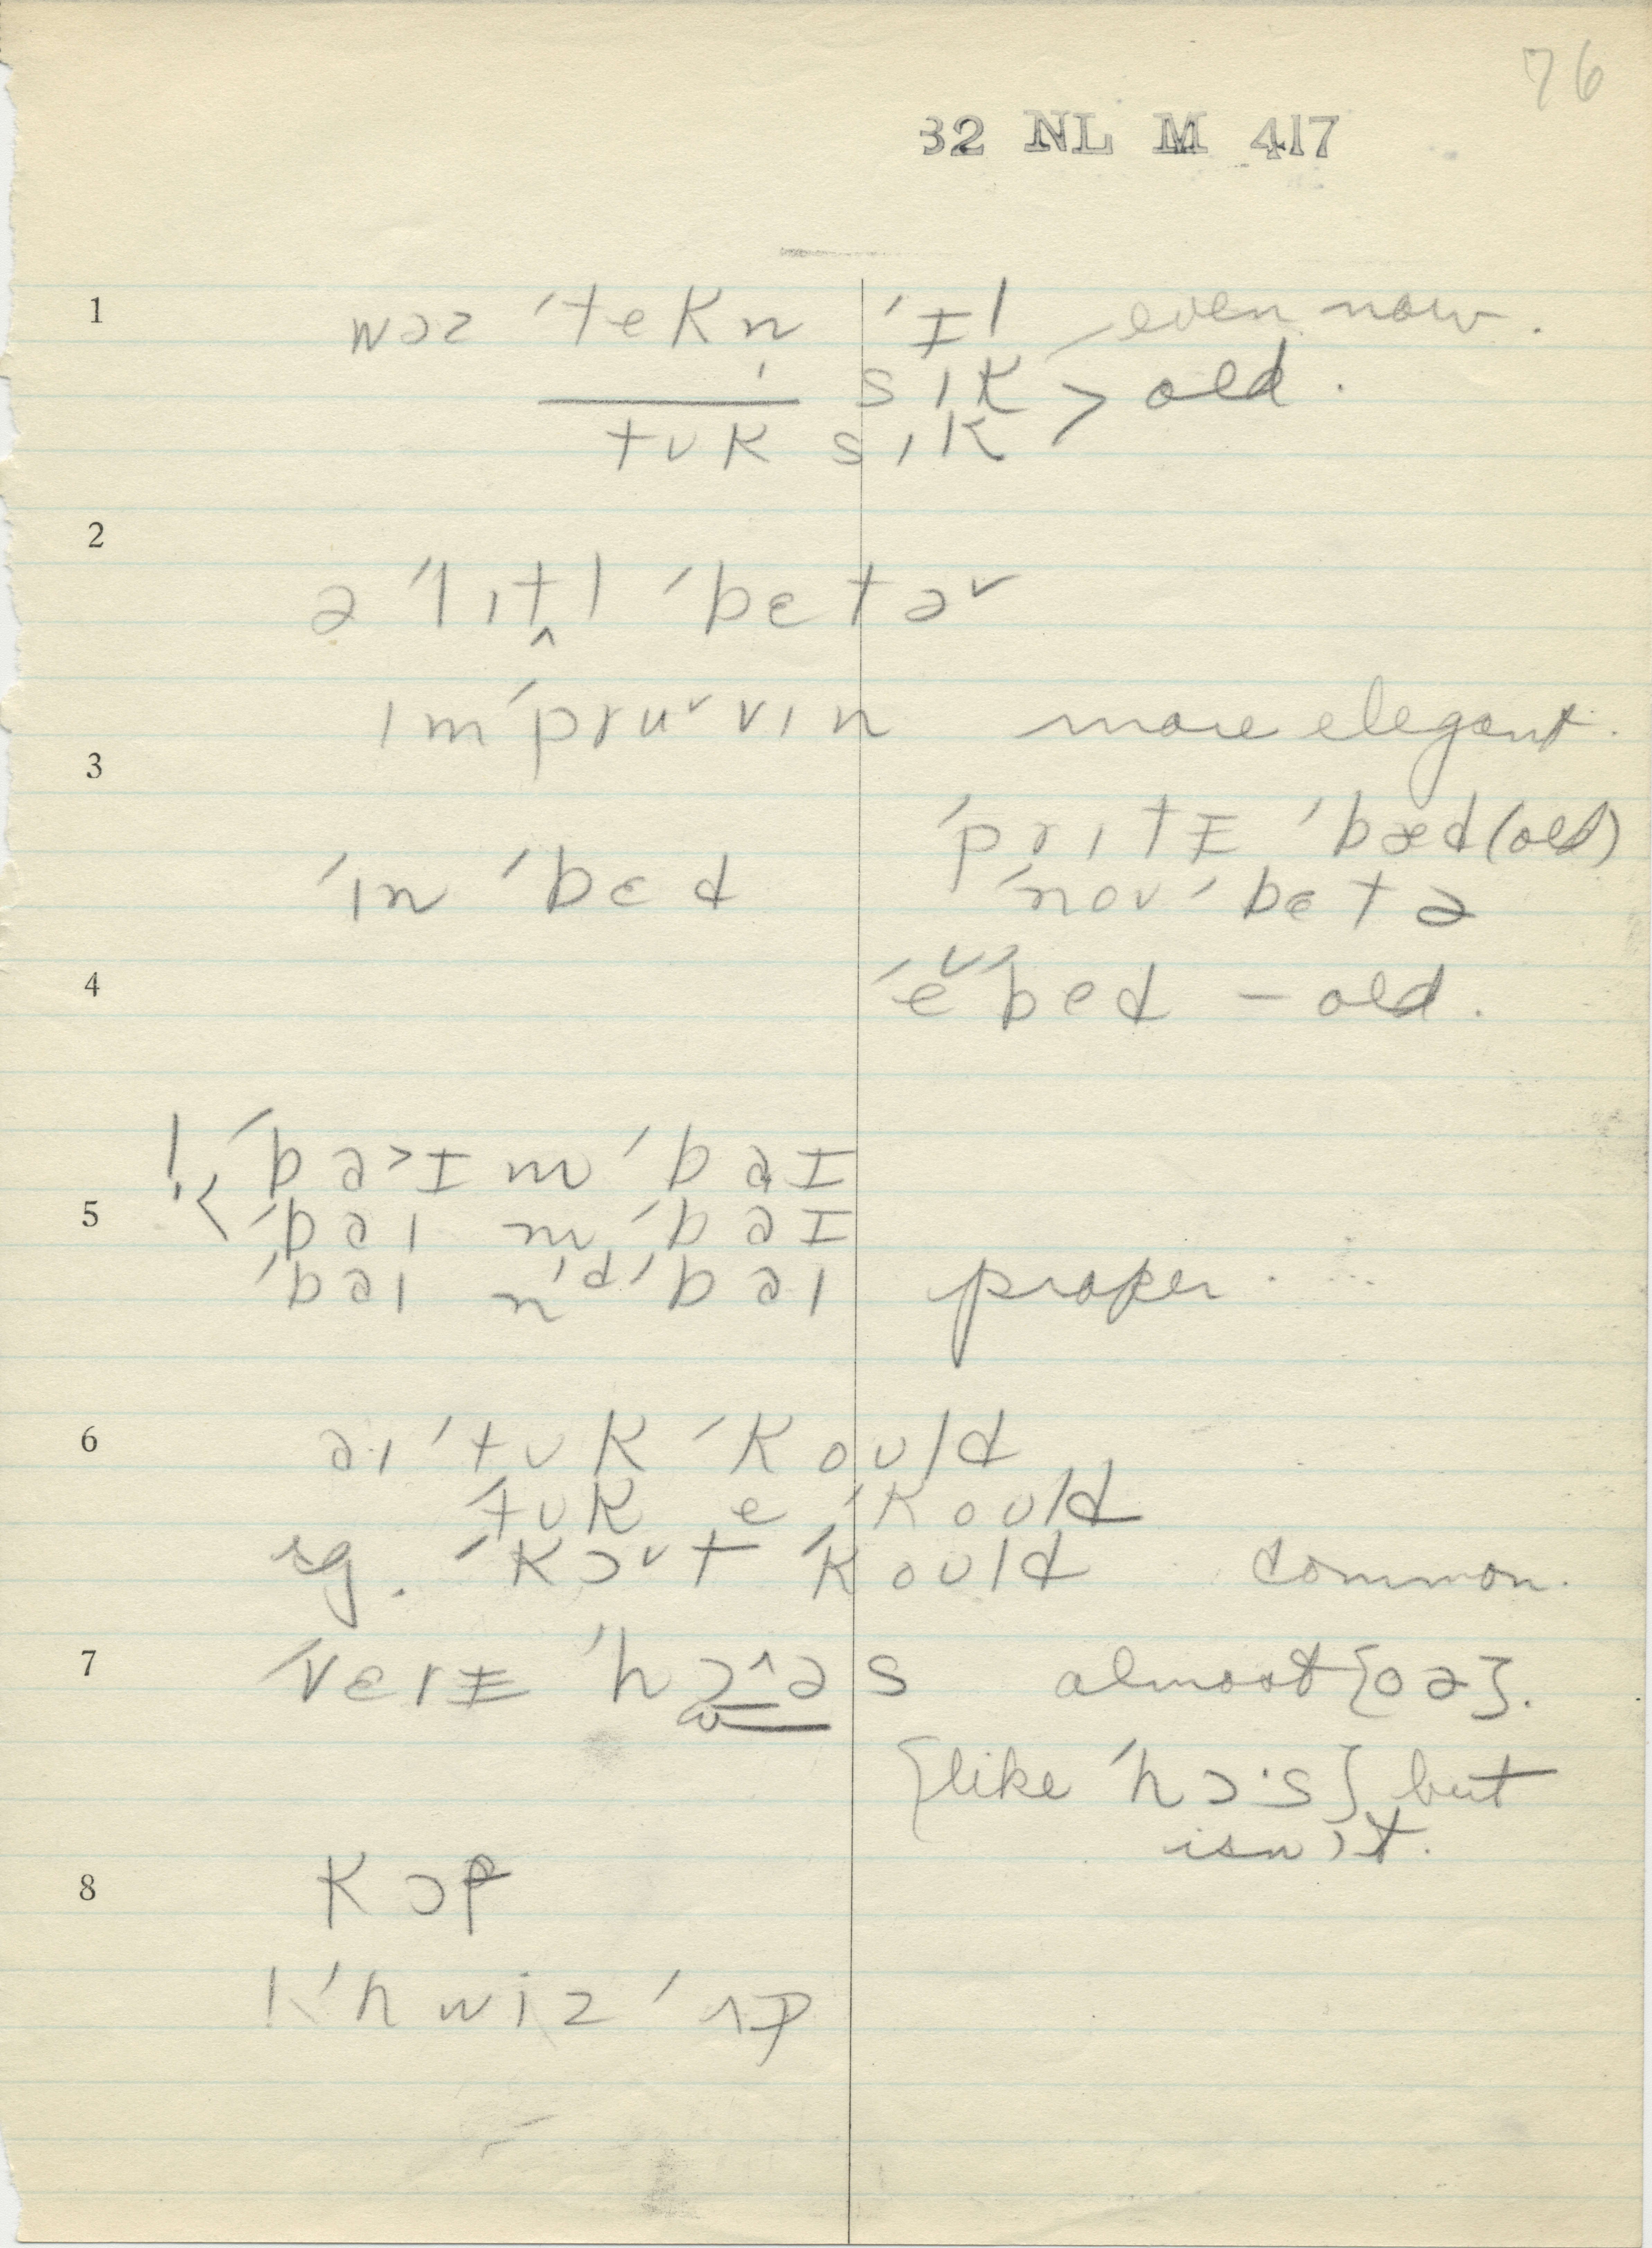 76
32 NL M 417
1 wəz ˈtekn̩ ˈɪl even now.
sɪk > old.
tʊk sɪk
2
ə ˈlɪt̬l ˈbɛtə˅
ɪmˈpru˅vɪn more elegant.
3
ˈprɪtɪ ˈbæd (old)
ˈɪn ˈbɛd ˈnoʊ ˈbɛtə
4 ˈe˅ˈbed – old.
! ˈbə>ɪ m ˈbəɪ
5 ˈbəɪ m ˈbəɪ
ˈbəɪ n'd'ˈbəɪ proper.
6 əɪ ˈtʊk ˈkoʊld
ˈtʊk e ˈkoʊld
sg. ˈkɔ˅t ˈkoʊld common.
7 ˈvɛrɪ ˈhɔ^əs almost {oə}.
{like ˈhɔ·s} but
isn't.
8 kɔf
! ˈhwiz ˈʌp